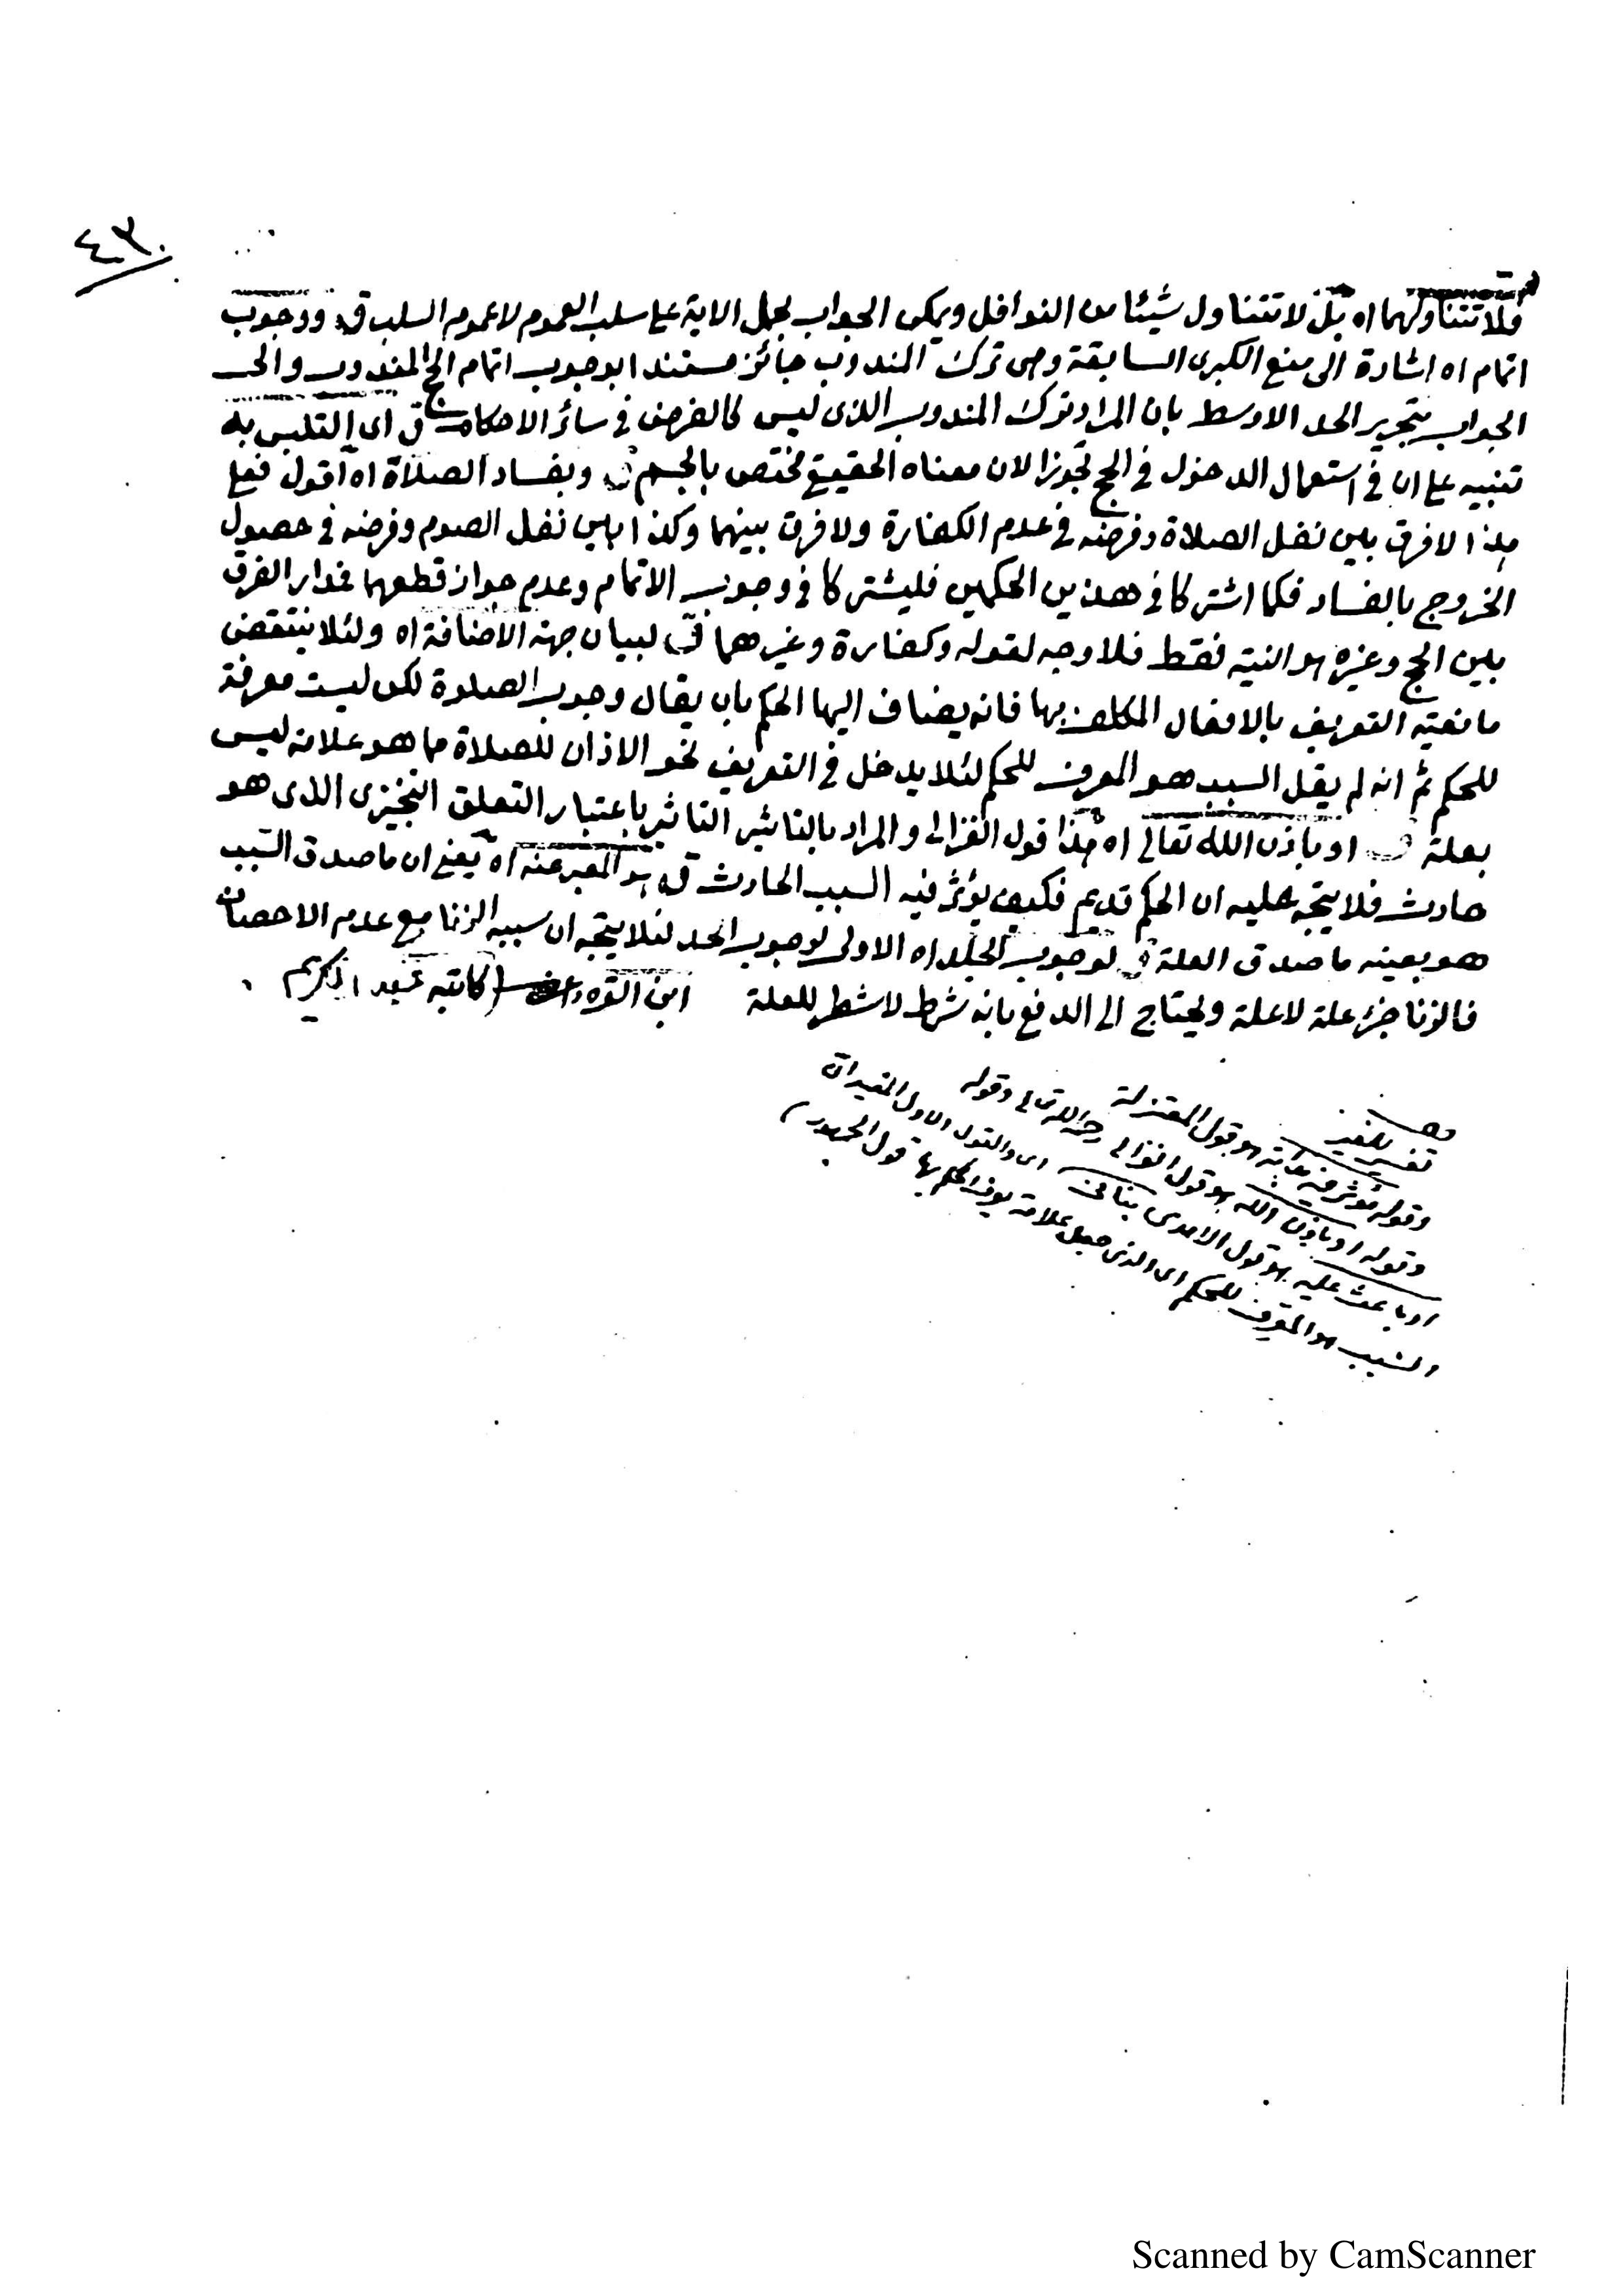 ٤٣
فلا تتناولهما اه بل لا تتناول شيئا من النوافل ويمكن الجواب بحمل الاية على سلب العموم لا عموم السلب ق ووجوب
اتمام اه اشارة الى منع الكبرى السابقة وهى ترك المندوب جائز مستندا بوجوب اتمام الحج المندوب والى
الجواب بتحرير الحد الاوسط بان المراد ترك المندوب الذى ليس كالفرض فى سائر الاحكام ق اى التلبس به
تنبيه على ان فى استعمال الدخول فى الحج تجوزا لان معناه الحقيقى مختص بالجسم ق وبفساد الصلاة اه اقول فعلى
هذا لا فرق بين نفل الصلاة وفرضه فى عدم الكفارة ولا فرق بينهما وكذا بين نفل الصوم وفرضه فى حصول
الخروج بالفساد فكما اشتركا فى هذين الحكمين فليشتركا فى وجوب الاتمام وعدم جواز قطعهما فمدار الفرق
بين الحج وغيره هو النية فقط فلا وجه لقوله وكفارة وغيرهما ق لبيان جهة الاضافة اه ولئلا ينتقض
مانعية التعريف بالافعال المكلف بها فانه يضاف اليها الحكم بان يقال وجوب الصلوة لكن ليست معرفة
للحكم ثم انه لم يقل السبب هو المعرف للحكم لئلا يدخل فى التعريف نحو الاذان للصلاة مما هو علامة ليس
بعلة ق او باذن الله تعالى اه هذا قول الغزالى والمراد بالتاثير التاثير باعتبار التعلق التنجيزى الذى هو
حادث فلا يتجه عليه ان الحكم قديم فكيف يؤثر فيه السبب الحادث ق هو المعبر عنه اه يعنى ان ماصدق السبب
هو بعينه ماصدق العلة ق لوجوب الجلد اه الاولى لوجوب الحد لئلا يتجه ان سببه الزنا مع عدم الاحصان
فالزنا جزء علة لا علة ويحتاج الى الدفع بانه شرط لا شطر للعلة ابن القره داغى (كاتبه عبد الكريم
تفسير للغير
وقوله مؤثر فيه بذاته هو قول المعتزلة
وقوله او باذن الله هو قول الغزالى رحمه الله تعالى وقوله
او باعث عليه هو قول الامدى ينافى اى والقول الاول القيدان
السبب هو المعرف للحكم اى الذى جعل علامة يعرف الحكم بها قول الجمهور)
Scanned by CamScanner